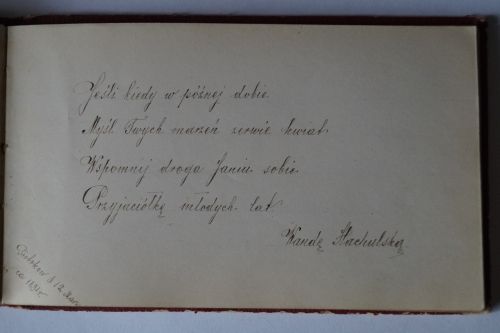 Jeśli kiedy w późnej dobie
Myśl Twych marzeń zerwie kwiat
Wspomnij droga Janiu sobie
Przyjaciółkę młodych lat.
Wandę Stachulską